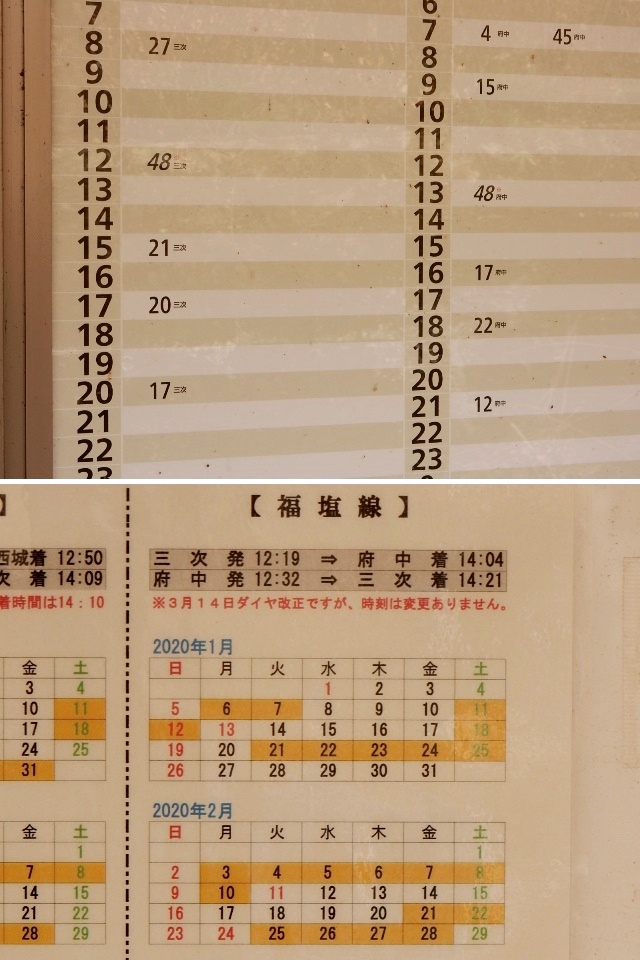 7
8 27 三次
9
10
11
12 48 三次
13
14
15 21 三次
16
17 20 三次
18
19
20 17 三次
21
22
23
6
7 4 府中 45 府中
8
9 15 府中
10
11
12
13 48 府中
14
15
16 17 府中
17
18 22 府中
19
20
21 12 府中
22
23
】
西城着 12:50
次 着 14:09
着時間は14:10
金 土
3 4
10 11
17 18
24 25
31
金 土
1
7 8
14 15
21 22
28 29
【 福 塩 線 】
三 次 発 12:19 ⇒ 府 中 着 14:04
府 中 発 12:32 ⇒ 三 次 着 14:21
※3月14日ダイヤ改正ですが、時刻は変更ありません。
2020年1月
日 月 火 水 木 金 土
1 2 3 4
5 6 7 8 9 10 11
12 13 14 15 16 17 18
19 20 21 22 23 24 25
26 27 28 29 30 31
2020年2月
日 月 火 水 木 金 土
1
2 3 4 5 6 7 8
9 10 11 12 13 14 15
16 17 18 19 20 21 22
23 24 25 26 27 28 29